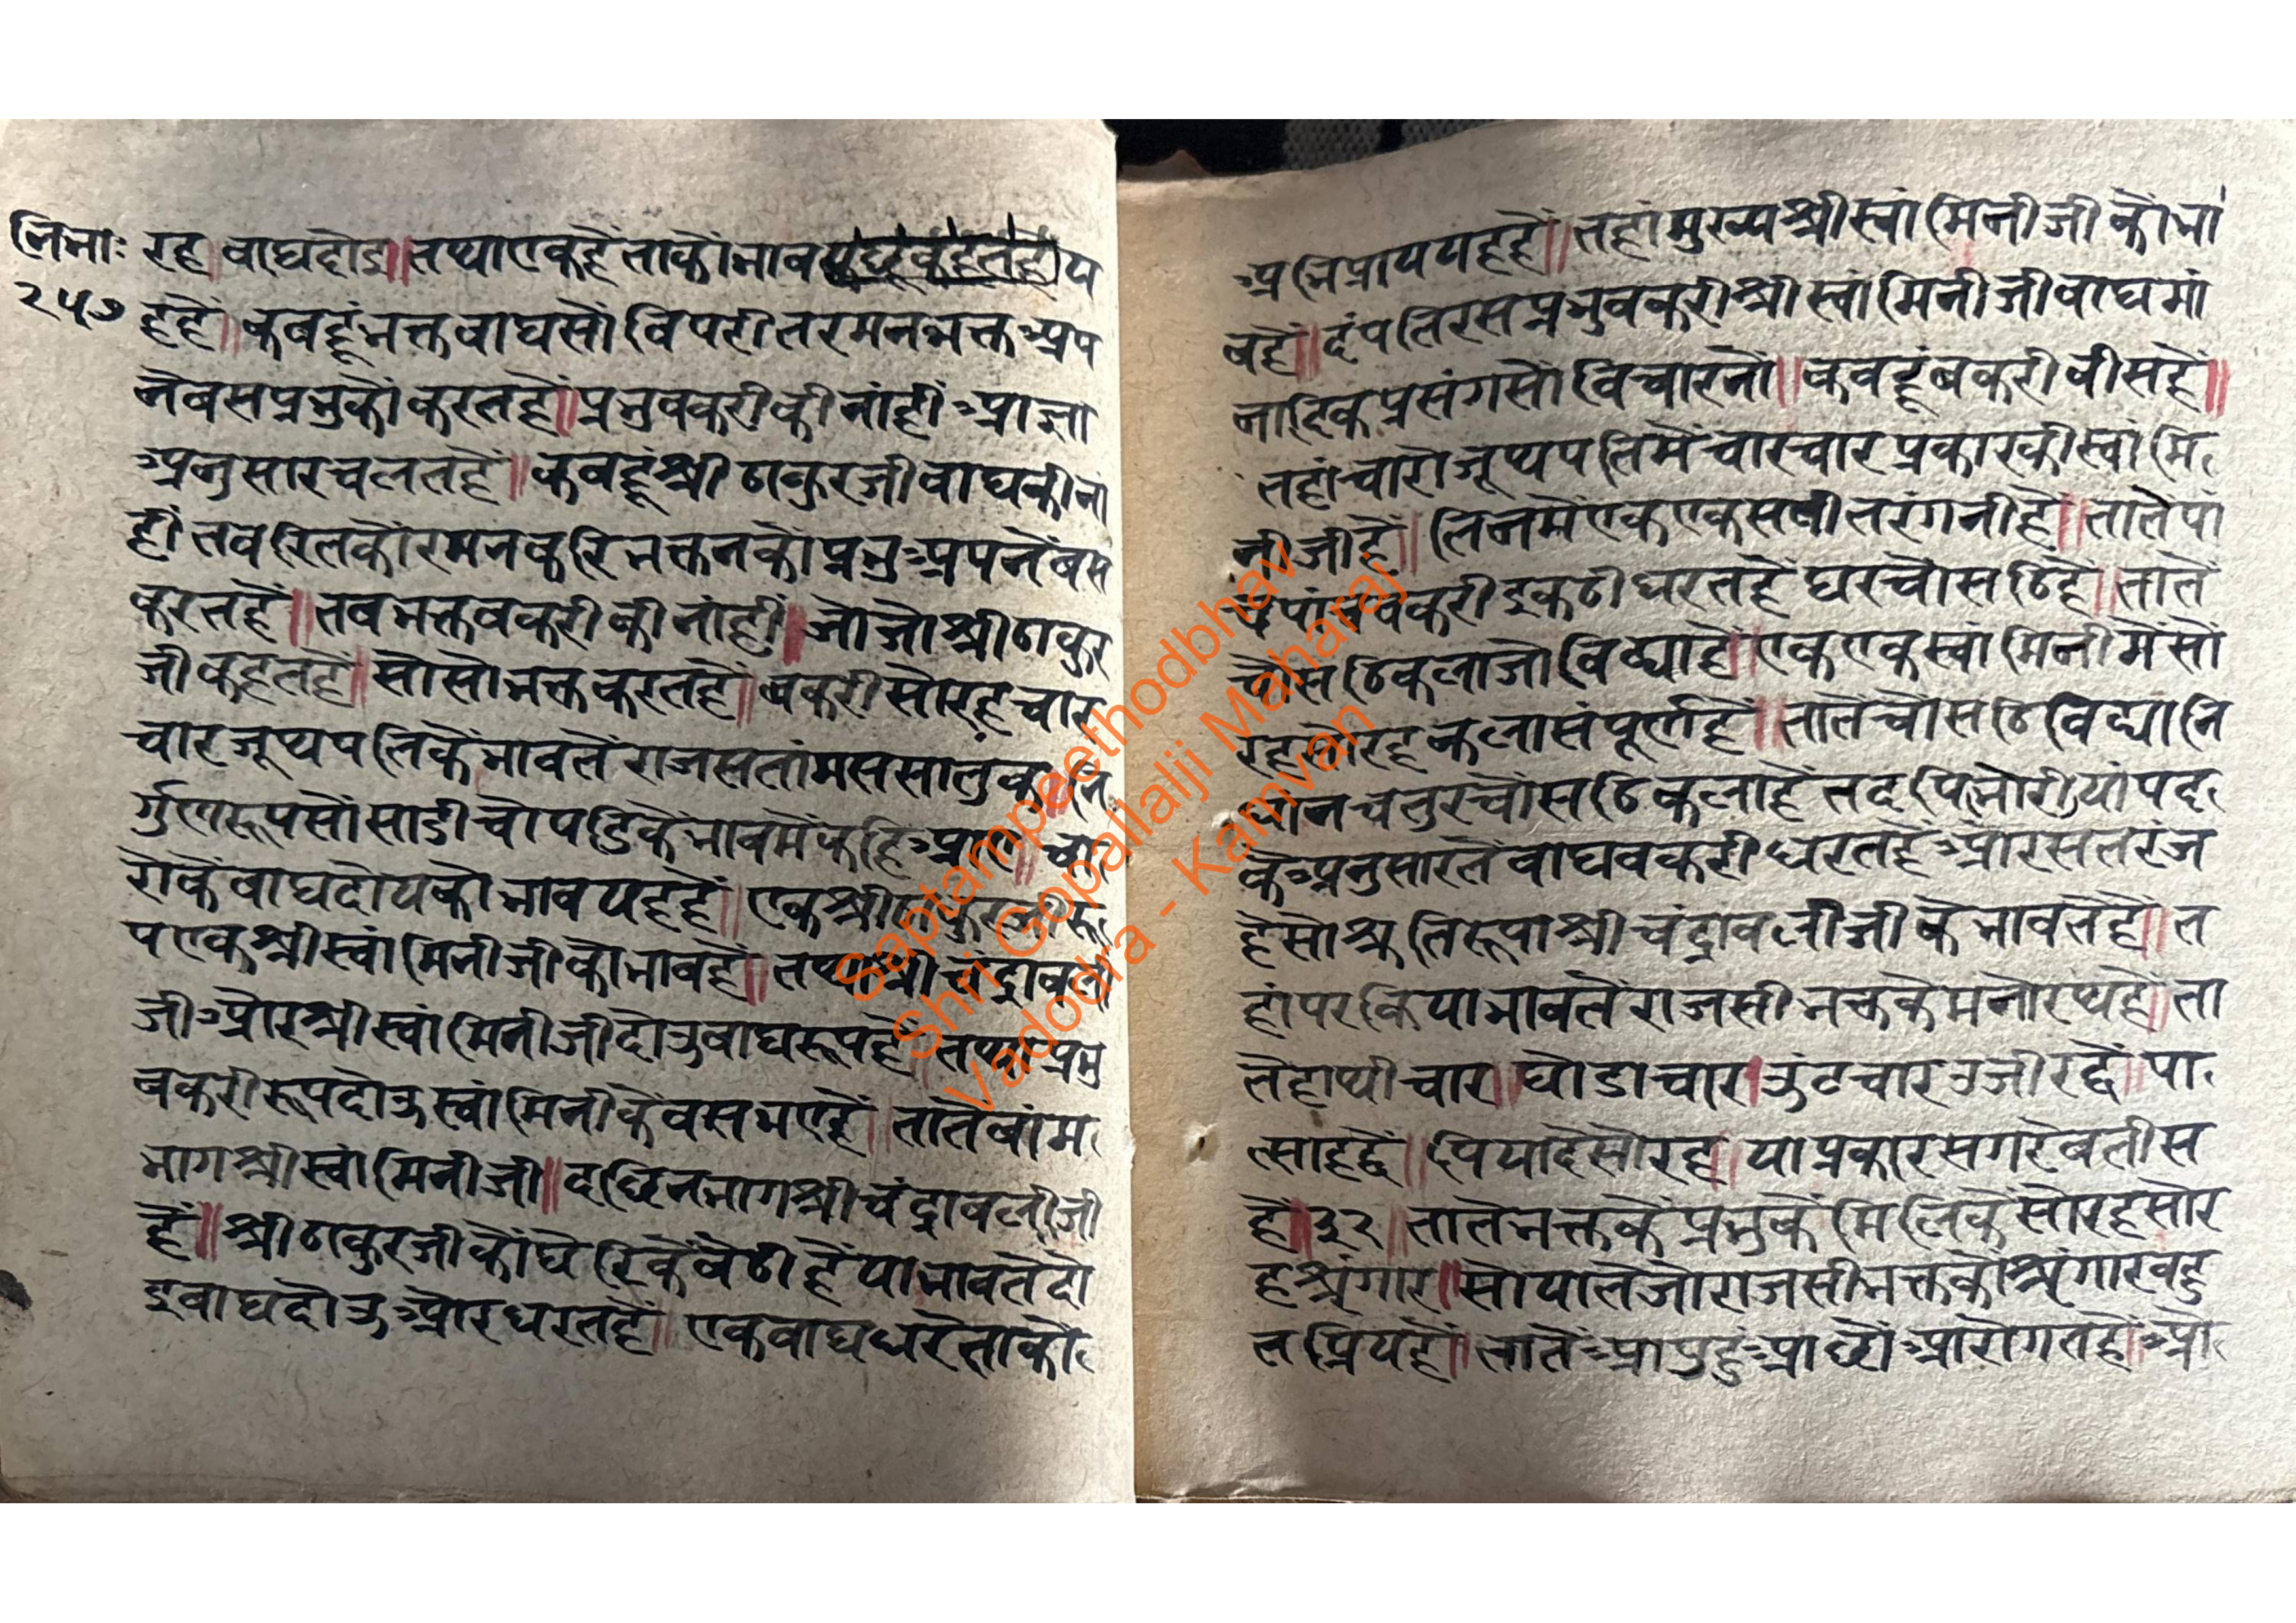 निभाः
२५७
रह॥वाघदोइ॥तथाएकहैंताकौभाव य
हहैं॥कबहूंभक्तवाघसौंविपरीतरमनभक्तअप
नेबसप्रभुकौंकरतहैं॥प्रभुबकरीकीनांहीं आज्ञा
अनुसारचलतहैं॥कबहूंश्रीठाकुरजीवाघकीनां
हीं तबरितकौंरमनकरिभक्तनकौंप्रभुअपनेंबस
करतहैं॥तबभक्तबकरीकीनांहीं॥जोजोश्रीठाकुर
जीकहतहैं॥सोसोभक्तकरतहैं॥बकरीसोरहचार
चारजूथपतिकेंभावतेंराजसतांमससातुक॥नि
र्गुणरूपसौंसाडीचोपडिकेंभावमेंकहिआए॥चा
रोकेंवाघदोयकौभावयहहैं॥एकश्रीठाकुरजीरू
पएकश्रीस्वांमिनीजीकौभावहैं॥तथाश्रीचंद्रावली
जीऔरश्रीस्वांमिनीजीदोउवाघरूपहैं॥तथाप्रभु
बकरीरूपदोउस्वांमिनीकेंबसभएहैं॥तातेंबांम
भागश्रीस्वांमिनीजी॥दछिनभागश्रीचंद्रावलीजी
हैं॥श्रीठाकुरजीकौंघेरिकेंबेठीहैंयाभावतेंदो
इवाघदोउऔरधरतहैं॥एकवाघधरेताकौ
अभिप्राययहहैं॥तहांमुख्यश्रीस्वांमिनीजीकौभा
वहैं॥दंपतिरसप्रभुबकरीश्रीस्वांमिनीजीवाघमां
नादिकप्रसंगसौंविचारनौं॥कबहूंबकरीवीसहैं॥
तहांचारोजूथपतिमेंचारचारप्रकारकीस्वांमि
नीजीहैं॥तिनमेंएकएकसखीतरंगनीहैं॥तातेंपां
चपांचबकरीइकठीधरतहैंघरचोसठिहैं॥तातें
चोसठिकलाजोविद्याहैं॥एकएकस्वांमिनीमेंसो
रहसोरहकलासंपूर्णहैं॥तातेंचोसठिविद्यानि
धानचतुरचोसठिकलाहैंतदपिभोरीयांपद
केंअनुसारतेंवाघबकरीधरतहैंऔरसतरंज
हैसोश्रुतिरूपाश्रीचंद्रावलीजीकेंभावतेंहैं॥त
हांपरकियाभावतेंराजसीभक्तकेमनोरथहैं॥ता
तेंहाथीचार॥घोडाचार॥उंटचारउजीरद्वें॥पा
त्साहद्वें॥पियादेसोरह॥याप्रकारसगरेबतीस
हैं॥३२॥तातेंभक्तकेंप्रभुकेंमिलिकेंसोरहसोर
हश्रृंगार॥सोयातेंजोराजसीभक्तकौश्रृंगारबहु
तप्रियहैं॥तातेंआपुहुंआछोंआरोगतहैं॥औ